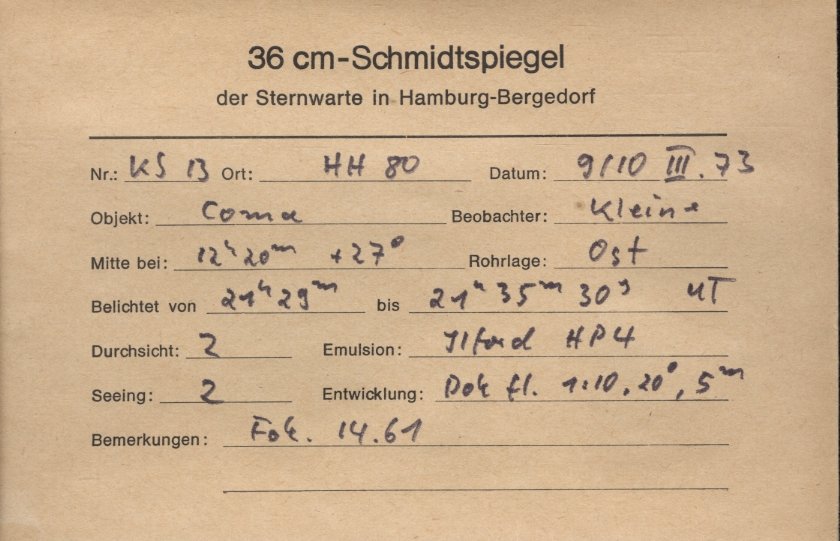 36 cm-Schmidtspiegel
der Sternwarte in Hamburg-Bergedorf
Nr.: KS 13 Ort: HH 80 Datum: 9/10 III. 73
Objekt: Coma Beobachter: Kleine
Mitte bei: 12h 20m +27° Rohrlage: Ost
Belichtet von 21h 29m bis 21h 35m 30s UT
Durchsicht: 2 Emulsion: Ilford HP4
Seeing: 2 Entwicklung: Dok fl. 1:10, 20°, 5m
Bemerkungen: Fok. 14.61